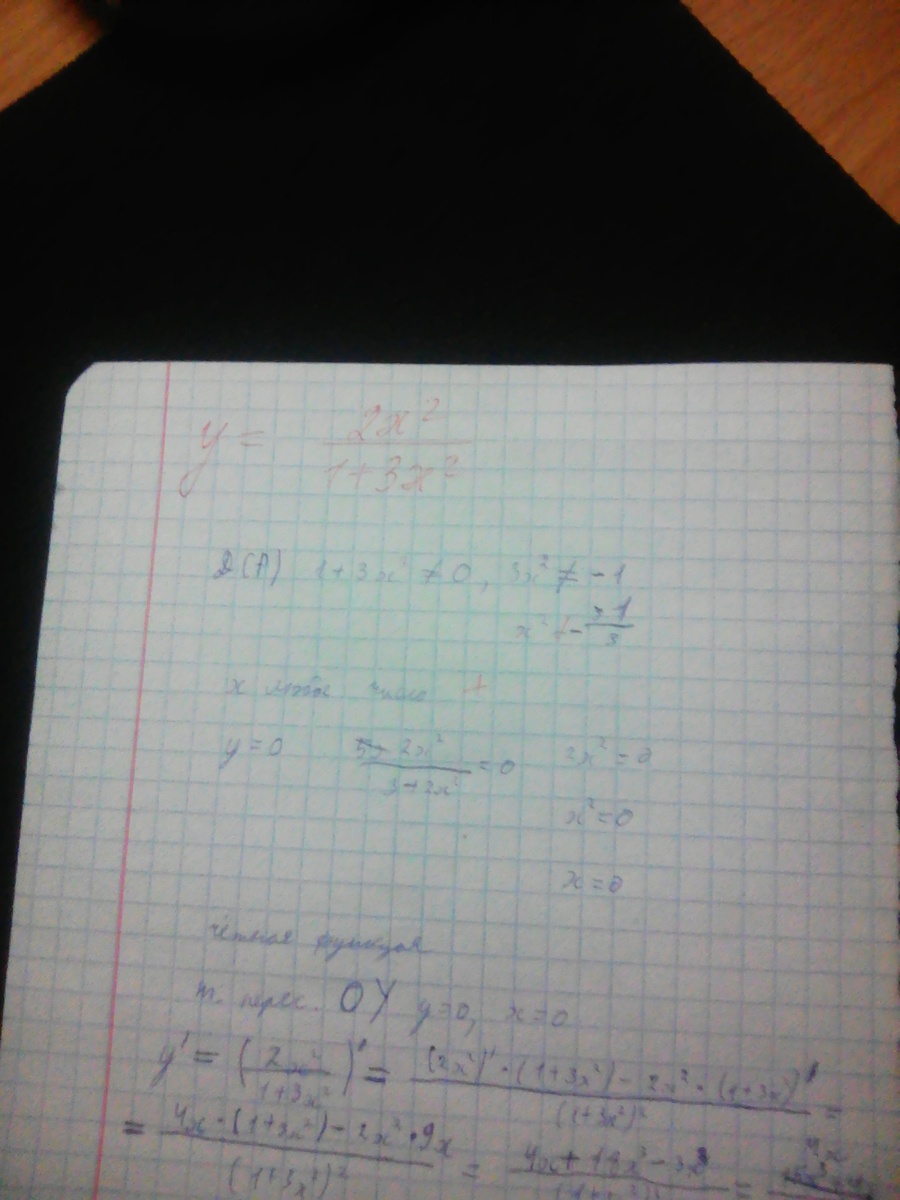 y = 2x² / 1+3x²
D(f) 1+3x² ≠ 0, 3x² ≠ -1
x² ≠ - 1/3
x любое число +
y=0 2x² / 3+2x² = 0 2x² = 0
x² = 0
x = 0
чётная функция
т. перес. OY y=0, x=0
y' = (2x² / 1+3x²)' = (2x²)' · (1+3x²) - 2x² · (1+3x²)' / (1+3x²)² =
= 4x · (1+3x²) - 2x² · 9x / (1+3x²)² = 4x + 18x³ - 3x³